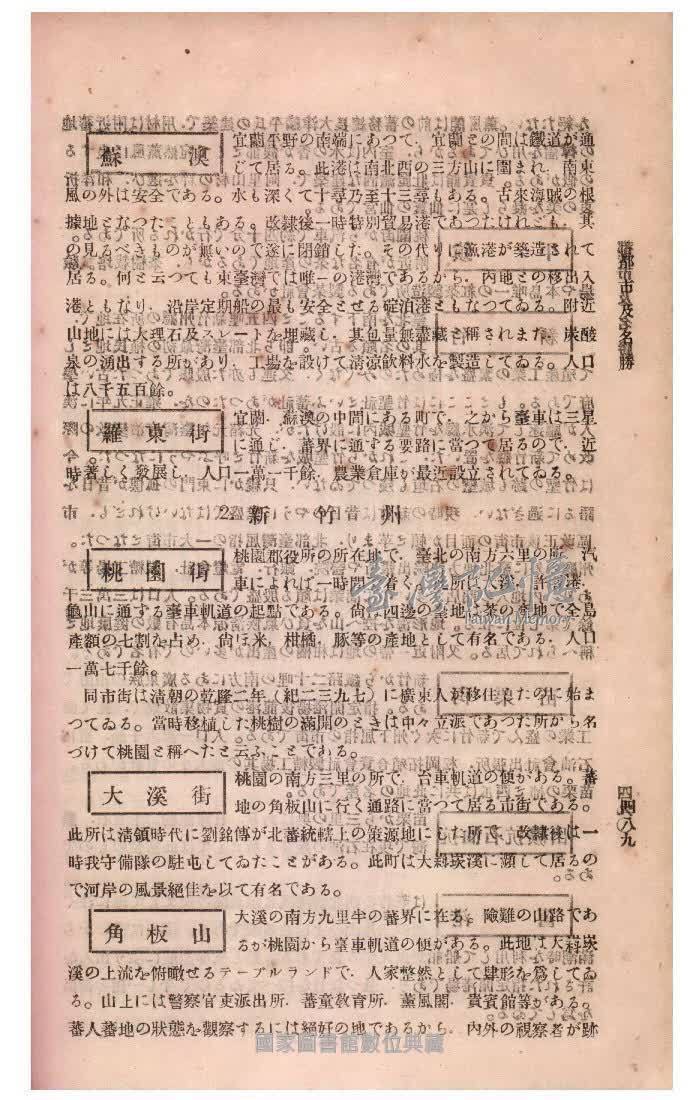 蘇澳
宜蘭平野の南端にあつて、宜蘭との間は鐵道が通
じて居る。此港は南北西の三方山に圍まれ、南東
風の外は安全である。水も深くて十尋乃至十三尋もある。古來海賊の根
據地となつたこともある。改隸後一時特別貿易港であつたけれども、其
の見るべきものが無いので遂に閉鎖した。その代りに漁港が築造されて
居る。何と云つても東臺灣では唯一の港灣であるから、內地との移出入
港ともなり、沿岸定期船の最も安全とせる碇泊港ともなつてゐる。附近
山地には大理石及スレートを埋藏し、其包量無盡藏と稱されまた、炭酸
泉の湧出する所があり、工場を設けて淸凉飮料水を製造してゐる。人口
は八千五百餘。
羅東街
宜蘭、蘇澳の中間にある町で、之から臺車は三星
に通じ、蕃界に通ずる要路に當つて居るので、近
時著しく發展し、人口一萬一千餘、農業倉庫が最近設立されてゐる。
2 新竹州
桃園街
桃園郡役所の所在地で、臺北の南方六里の所、汽
車によれば一時間で着く。此所は大溪、許厝港、
龜山に通ずる臺車軌道の起點である。尙ほ四邊の臺地は茶の產地で全島
產額の七割を占め、尙ほ米、柑橘、豚等の產地として有名である、人口
一萬七千餘。
同市街は淸朝の乾隆二年(紀二三九七)に廣東人が移住來たのに始ま
つてゐる。當時移植した桃樹の滿開のときは中々立派であつた所から名
づけて桃園と稱へたと云ふことである。
大溪街
桃園の南方三里の所で、台車軌道の便がある。蕃
地の角板山に行く通路に當つて居る市街である。
此所は淸領時代に劉銘傳が北蕃統轄上の策源地にした所で、改隸後は一
時我守備隊の駐屯してゐたことがある。此町は大嵙崁溪に瀕して居るの
で河岸の風景絕佳を以て有名である。
角板山
大溪の南方九里半の蕃界に在る。險難の山路であ
るが桃園から臺車軌道の便がある。此地は大嵙崁
溪の上流を俯瞰せるテーブルランドで、人家整然として肆形を爲してゐ
る。山上には警察官吏派出所、蕃童敎育所、薰風閣、貴賓館等がある。
蕃人蕃地の狀態を觀察するには絕好の地であるから、內外の視察者が跡
臺灣記憶
Taiwan Memory
國家圖書館數位典藏